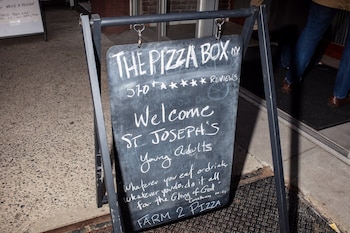 THE PIZZA BOX NY
570+ ★★★★★ REVIEWS
Welcome
ST JOSEPH'S
Young Adults
Whatever you eat or drink
whatever you do, do it all
for the Glory of God
FARM 2 PIZZA